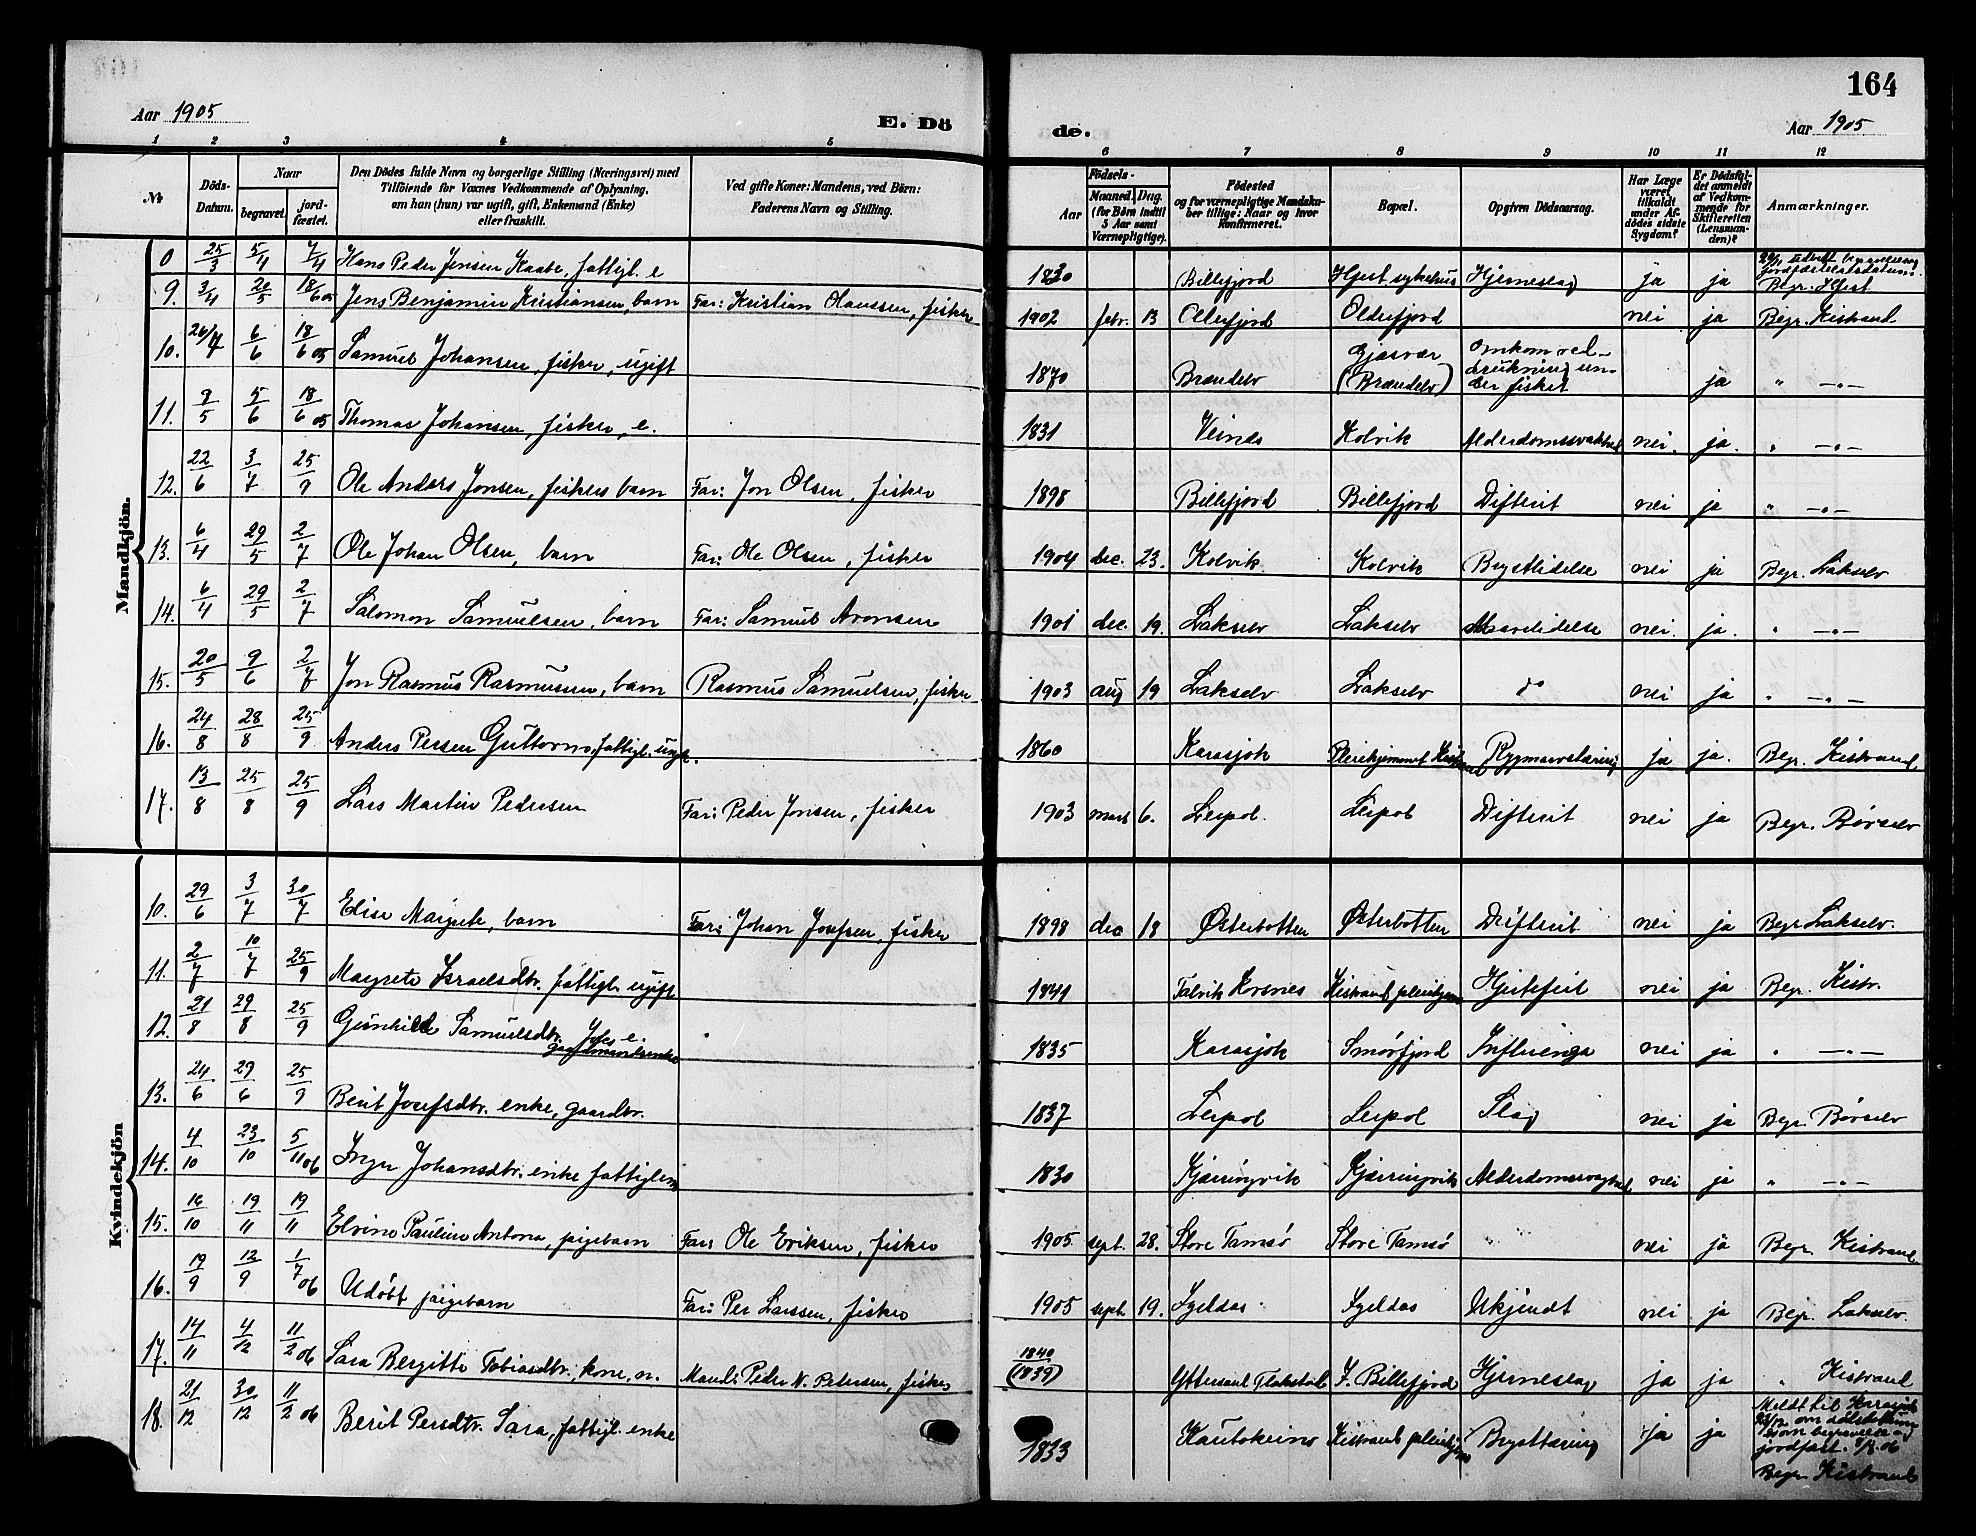 164
Aar 1905
E. Dö
de.
Aar 1905
1 2 3 4 5 6 7 8 9 10 11 12
№
Döds-Datum.
Naar
begravet.
jord-fæstet.
Den Dödes fulde Navn og borgerlige Stilling (Næringsvei) med
Tilföiende for Voxnes Vedkommende af Oplysning,
om han (hun) var ugift, gift, Enkemand (Enke)
eller fraskilt.
Ved gifte Koner: Mandens, ved Börn:
Faderens Navn og Stilling.
Födsels-
Aar
Maaned. Dag.
(for Börn indtil
5 Aar samt
Værnepligtige).
Födested
og for værnepligtige Mandska-
ber tillige: Naar og hvor
Konfirmeret.
Bopæl.
Opgiven Dödsaarsag.
Har Læge
været
tilkaldt
under Af-
dödes sidste
Sygdom?
Er Dödsfal-
det anmeldt
af Vedkom-
mende for
Skifteretten
(Lensman-
den)?
Anmærkninger.
Mandkjön.
25/3 5/4 7/4 Hans Peder Jensen Kaabe, fattigl. e 1830 Billefjord Hjerneslag ja ja Begr.
9. 3/4 20/5 18/6 05 Jens Benjamin Kristiansen, barn Far: Kristian Olaussen, fisker 1902 febr. 13 Olderfjord Olderfjord nei ja Begr. Kistrand
10. 26/4 6/6 18/6 05 Samuel Johansen, fisker, ugift 1870 Brandelv Gjæsvær (Brandelv) Omkom ved drukning un-der fisket ja " —"—
11. 9/5 5/6 18/6 05 Thomas Johansen, fisker, e. 1831 Veines Kolvik Alderdomssvakhed nei. ja. " —"—
12. 22/6 3/7 25/9 Ole Anders Jonsen, fiskers barn Far: Jon Olsen, fisker 1898 Billefjord Billefjord Difterit nei ja " —"—
13. 6/4 29/5 2/7 Ole Johan Olsen, barn Far: Ole Olsen, fisker 1904 dec. 23. Kolvik Kolvik Brystlidelse nei ja Begr. Lakselv
14. 6/4 29/5 2/7 Salomon Samuelsen, barn Far: Samuel Aronsen 1901 dec. 19. Lakselv Lakselv Mavelidelse nei. ja. " —"—
15. 20/5 9/6 2/7 Jon Rasmus Rasmussen, barn Rasmus Samuelsen, fisker 1903 aug 19 Lakselv Lakselv do nei ja " —"—
16. 24/8 28/8 25/9 Anders Persen Guttorm, fattigl. ugift. 1860 Karasjok Pleiehjemmet Kistrand Rygmarvstæring ja ja. Begr. Kistrand
17. 13/8 25/8 25/9 Lars Martin Pedersen Far: Peder Jonsen, fisker 1903 mart 6. Leipol Leipol Difterit nei ja Begr. Børselv
Kvindekjön
10. 29/6 3/7 30/7 Elise Margrete, barn Far: Johan Josefsen, fisker 1898 dec 18 Østerbotten Østerbotten Difterit nei ja Begr Lakselv.
11. 2/7 10/7 25/9 Margrete Israelsdtr. fattigl. ugift 1841 Talvik Korsnes Kistrand pleiehjem Hjertefeil nei ja Begr. Kistr.
12. 21/8 29/8 25/9 Gunhild Samuelsdtr. gaardmandsenke 1835 Karasjok Smørfjord Influenza nei ja " —"—
13. 24/6 29/6 25/9 Berit Josefsdtr. enke, gaardbr. 1837 Leipol Leipol Slag nei ja Begr. Børselv
14. 4/10 23/10 5/11 06 Inger Johansdtr. enke fattiglem 1830 Kjærringvik Kjærringvik Alderdomssvaghed nei ja " —"—
15. 16/10 19/11 19/11 Elvine Pauline Antona, pigebarn Far: Ole Eriksen, fisker 1905 sept. 28. Store Tamsø Store Tamsø nei ja Begr. Kistrand
16. 19/9 12/9 1/7 06 Udøbt pigebarn Far: Per Larssen, fisker 1905 sept. 19. Igeldas Igeldas Ukjendt nei ja Begr. Lakselv.
17. 14/11 4/12 11/2 06 Sara Bergitte Tobiasdtr., kone, n. Mand: Peder N. Petersen, fisker 1840 (1839) Yttersand Flakstad I. Billefjord Hjerneslag ja ja " Kistrand
18. 21/12 30/12 11/2 06 Berit Persdtr. Sara, fattigl. enke 1833 Kautokeino Kistrand pleiehjem Brysttæring ja ja Meldt til Karasjok om dødsfald som begravelse og jordfæst. Begr. Kistrand